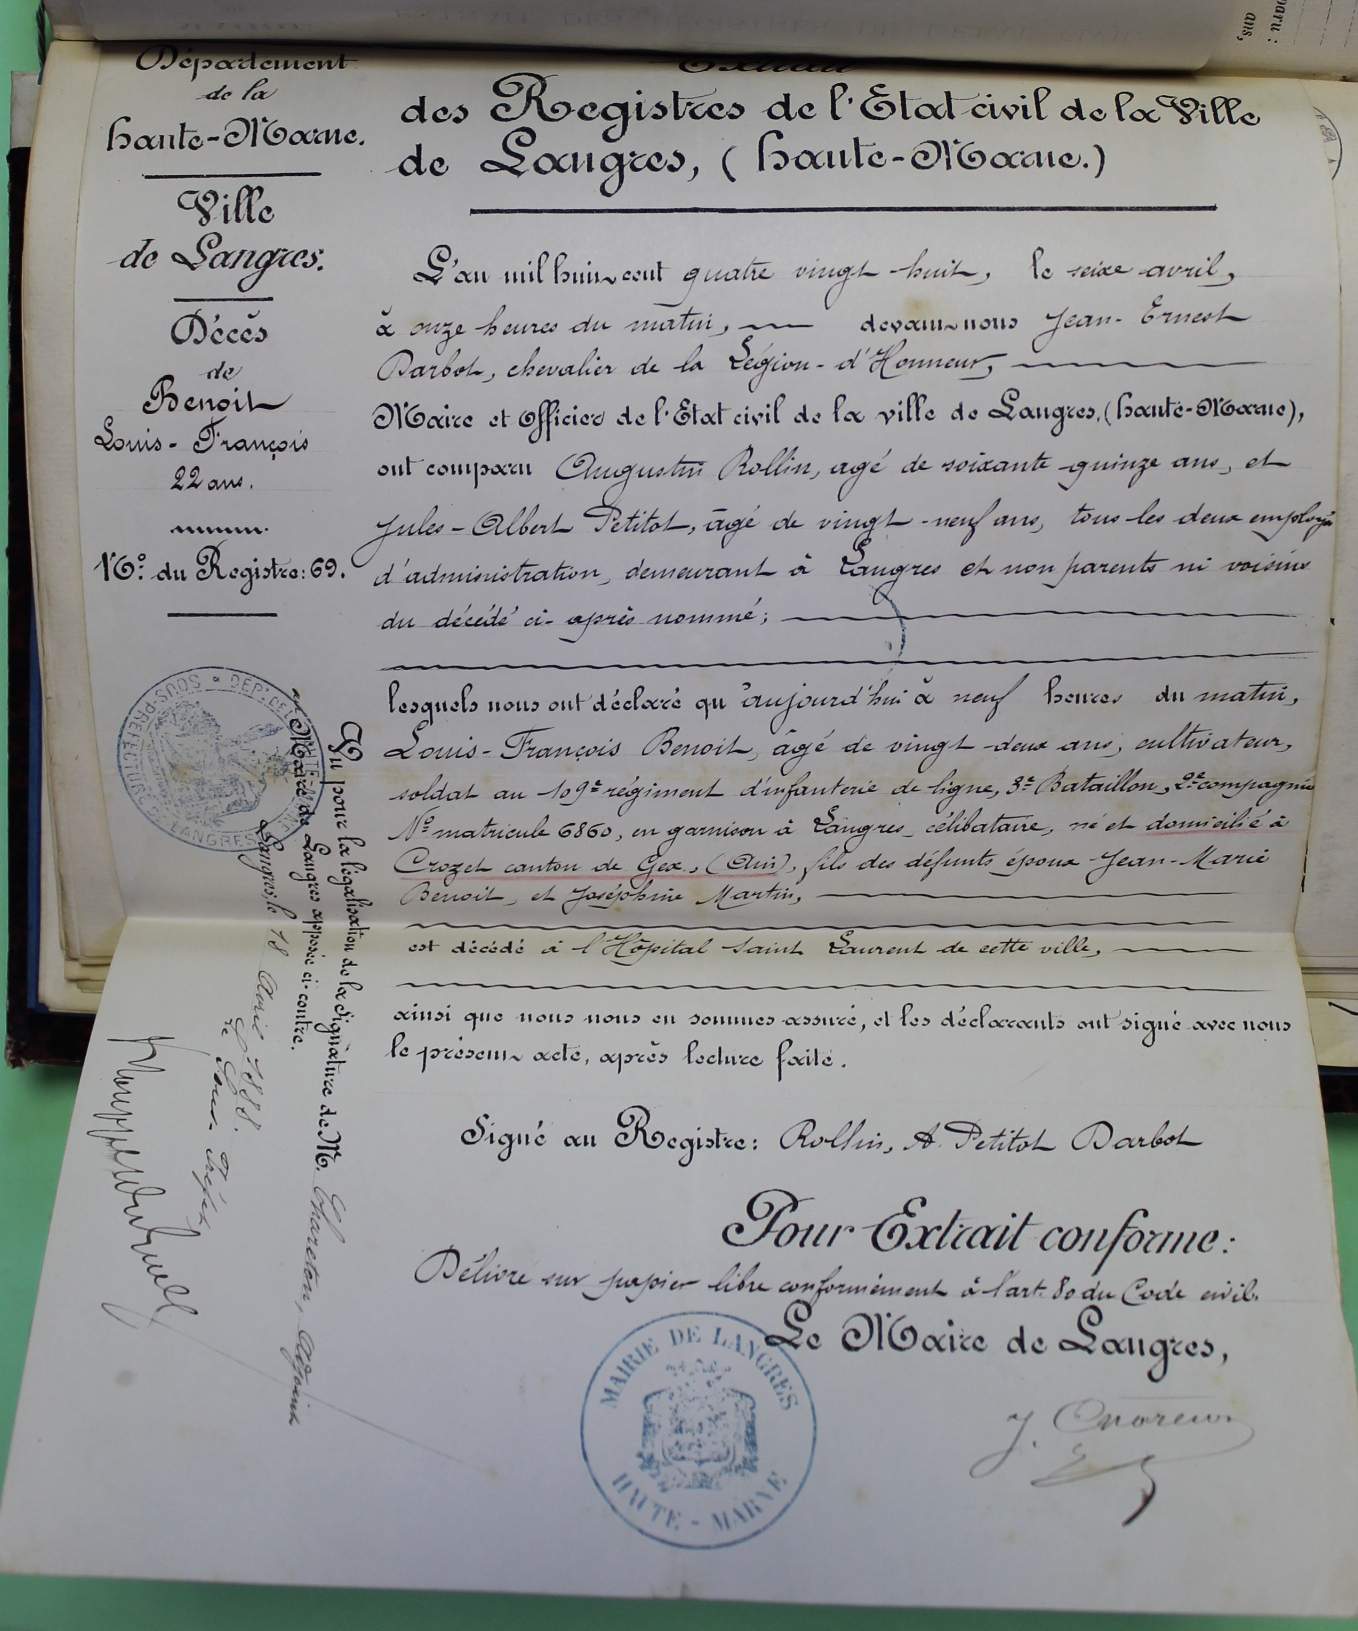 Département
de la
Haute-Marne.
Ville
de Langres.
Décès
de
Benoit
Louis-François
22 ans.
N.º du Registre: 69.
Extrait
des Registres de l'Etat civil de la Ville
de Langres, (Haute-Marne.)
L'an mil huit cent quatre vingt-huit, le seize avril,
à onze heures du matin, devant nous Jean-Ernest
Darbot, chevalier de la Légion-d'Honneur,
Maire et Officier de l'Etat civil de la ville de Langres, (Haute-Marne),
ont comparu Augustin Rollin, agé de soixante-quinze ans, et
Jules-Albert Petitot, âgé de vingt-neuf ans, tous les deux employés
d'administration, demeurant à Langres et non parents ni voisins
du décédé ci-après nommé;
lesquels nous ont déclaré qu'aujourd'hui à neuf heures du matin,
Louis-François Benoit, âgé de vingt-deux ans, cultivateur,
soldat au 109e régiment d'infanterie de ligne, 3e Bataillon, 2e compagnie
No matricule 6860, en garnison à Langres, célibataire, né et domicilié à
Crozet canton de Gex, (Ain), fils des défunts époux Jean-Marie
Benoit, et Joséphine Martin,
est décédé à l'Hôpital Saint Laurent de cette ville,
ainsi que nous nous en sommes assuré, et les déclarants ont signé avec nous
le présent acte, après lecture faite.
Signé au Registre: Rollin, A. Petitot Darbot
Pour Extrait conforme:
Délivré sur papier libre conformément à l'art. 80 du Code civil.
Le Maire de Langres,
MAIRIE DE LANGRES
HAUTE-MARNE
SOUS-PRÉFECTURE DE LANGRES
Vu pour la législation de la Signature de M. Chareton, Adjoint
Maire de Langres apposée ci-contre.
Langres, le 18 Avril 1888.
Le Sous-Préfet